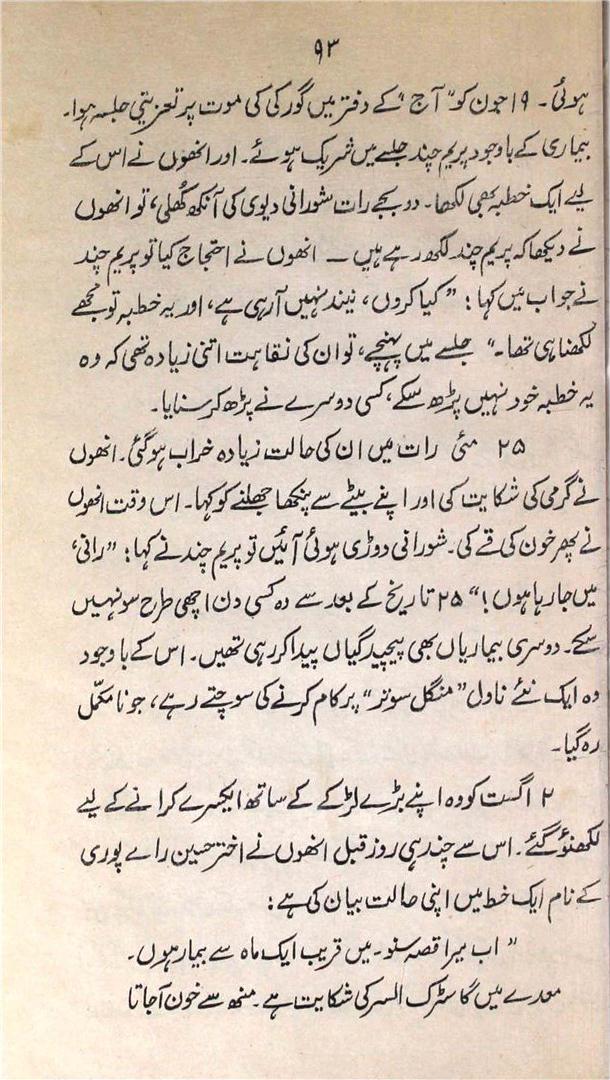 ۹۳
ہوئی۔ ۱۹ جون کو "آج" کے دفتر میں گورکی کی موت پر تعزیتی جلسہ ہوا۔
بیماری کے باوجود پریم چند جلسے میں شریک ہوئے۔ اور انھوں نے اس کے
لیے ایک خطبہ بھی لکھا۔ دو بجے رات شورانی دیوی کی آنکھ کھُلی، تو انھوں
نے دیکھا کہ پریم چند لکھ رہے ہیں ــ انھوں نے احتجاج کیا تو پریم چند
نے جواب میں کہا: "کیا کروں، نیند نہیں آرہی ہے، اور یہ خطبہ تو مجھے
لکھنا ہی تھا۔" جلسے میں پہنچے، تو ان کی نقاہت اتنی زیادہ تھی کہ وہ
یہ خطبہ خود نہیں پڑھ سکے، کسی دوسرے نے پڑھ کر سنایا۔
۲۵ مئی رات میں ان کی حالت زیادہ خراب ہوگئی۔ انھوں
نے گرمی کی شکایت کی اور اپنے بیٹے سے پنکھا جھلنے کو کہا۔ اس وقت انھوں
نے پھر خون کی قے کی۔ شورانی دوڑی ہوئی آئیں تو پریم چند نے کہا: "رانی،
میں جا رہا ہوں!" ۲۵ تاریخ کے بعد سے وہ کسی دن اچھی طرح سو نہیں
سکے۔ دوسری بیماریاں بھی پیچیدگیاں پیدا کر رہی تھیں۔ اس کے باوجود
وہ ایک نئے ناول "منگل سوتر" پر کام کرنے کی سوچتے رہے، جو نا مکمّل
رہ گیا۔
۲ اگست کو وہ اپنے بڑے لڑکے کے ساتھ ایکسرے کرانے کے لیے
لکھنؤ گئے۔ اس سے چند ہی روز قبل انھوں نے اختر حسین رائے پوری
کے نام ایک خط میں اپنی حالت بیان کی ہے:
"اب میرا قصہ سنو۔ میں قریب ایک ماہ سے بیمار ہوں۔
معدے میں گاسٹرک السر کی شکایت ہے۔ منھ سے خون آجاتا